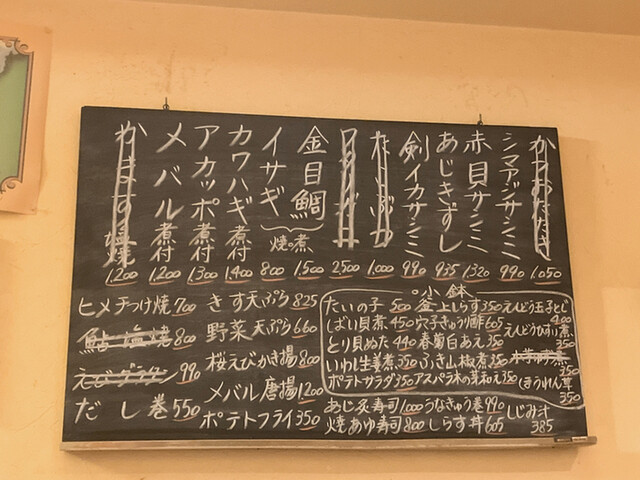 かつおたたき 1,050
シマアジサシミ 990
赤貝サシミ 1,320
あじきずし 935
剣イカサシミ 990
1,000
2,500
金目鯛 1,500
イサギ 800
焼o煮
カワハギ煮付 1,400
アカッポ煮付 1,300
メバル煮付 1,200
かます塩焼 1,200
ヒメチつけ焼 700
鮎塩焼 800
えびグラタン 990
だし巻 550
きす天ぷら 825
野菜天ぷら 660
桜えびかき揚 800
メバル唐揚 1200
ポテトフライ 350
o小鉢
たいの子 500 釜上しらす 350 えんどう玉子とじ 400
しぼり貝煮 450 穴子きゅうり酢 605 えんどうひすい煮 350
とり貝ぬた 440 春菊白あえ 350 350
いわし生姜煮 350 ふき山椒煮 350
ポテトサラダ 350 アスパラ木の芽和え 350 ほうれん草 350
あじ炙寿司 1,000 うなきゅう巻 990 しじみ汁 385
焼あゆ寿司 800 しらす丼 605